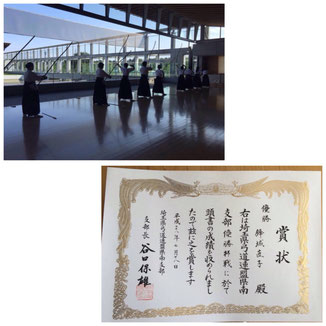 賞状
優勝
殿
右は埼玉県弓道連盟県南
支部優勝杯戦に於て
頭書の成績を收められまし
たので茲に之を賞します
平成
埼玉県弓道連盟県南支部
支部長 谷口保雄